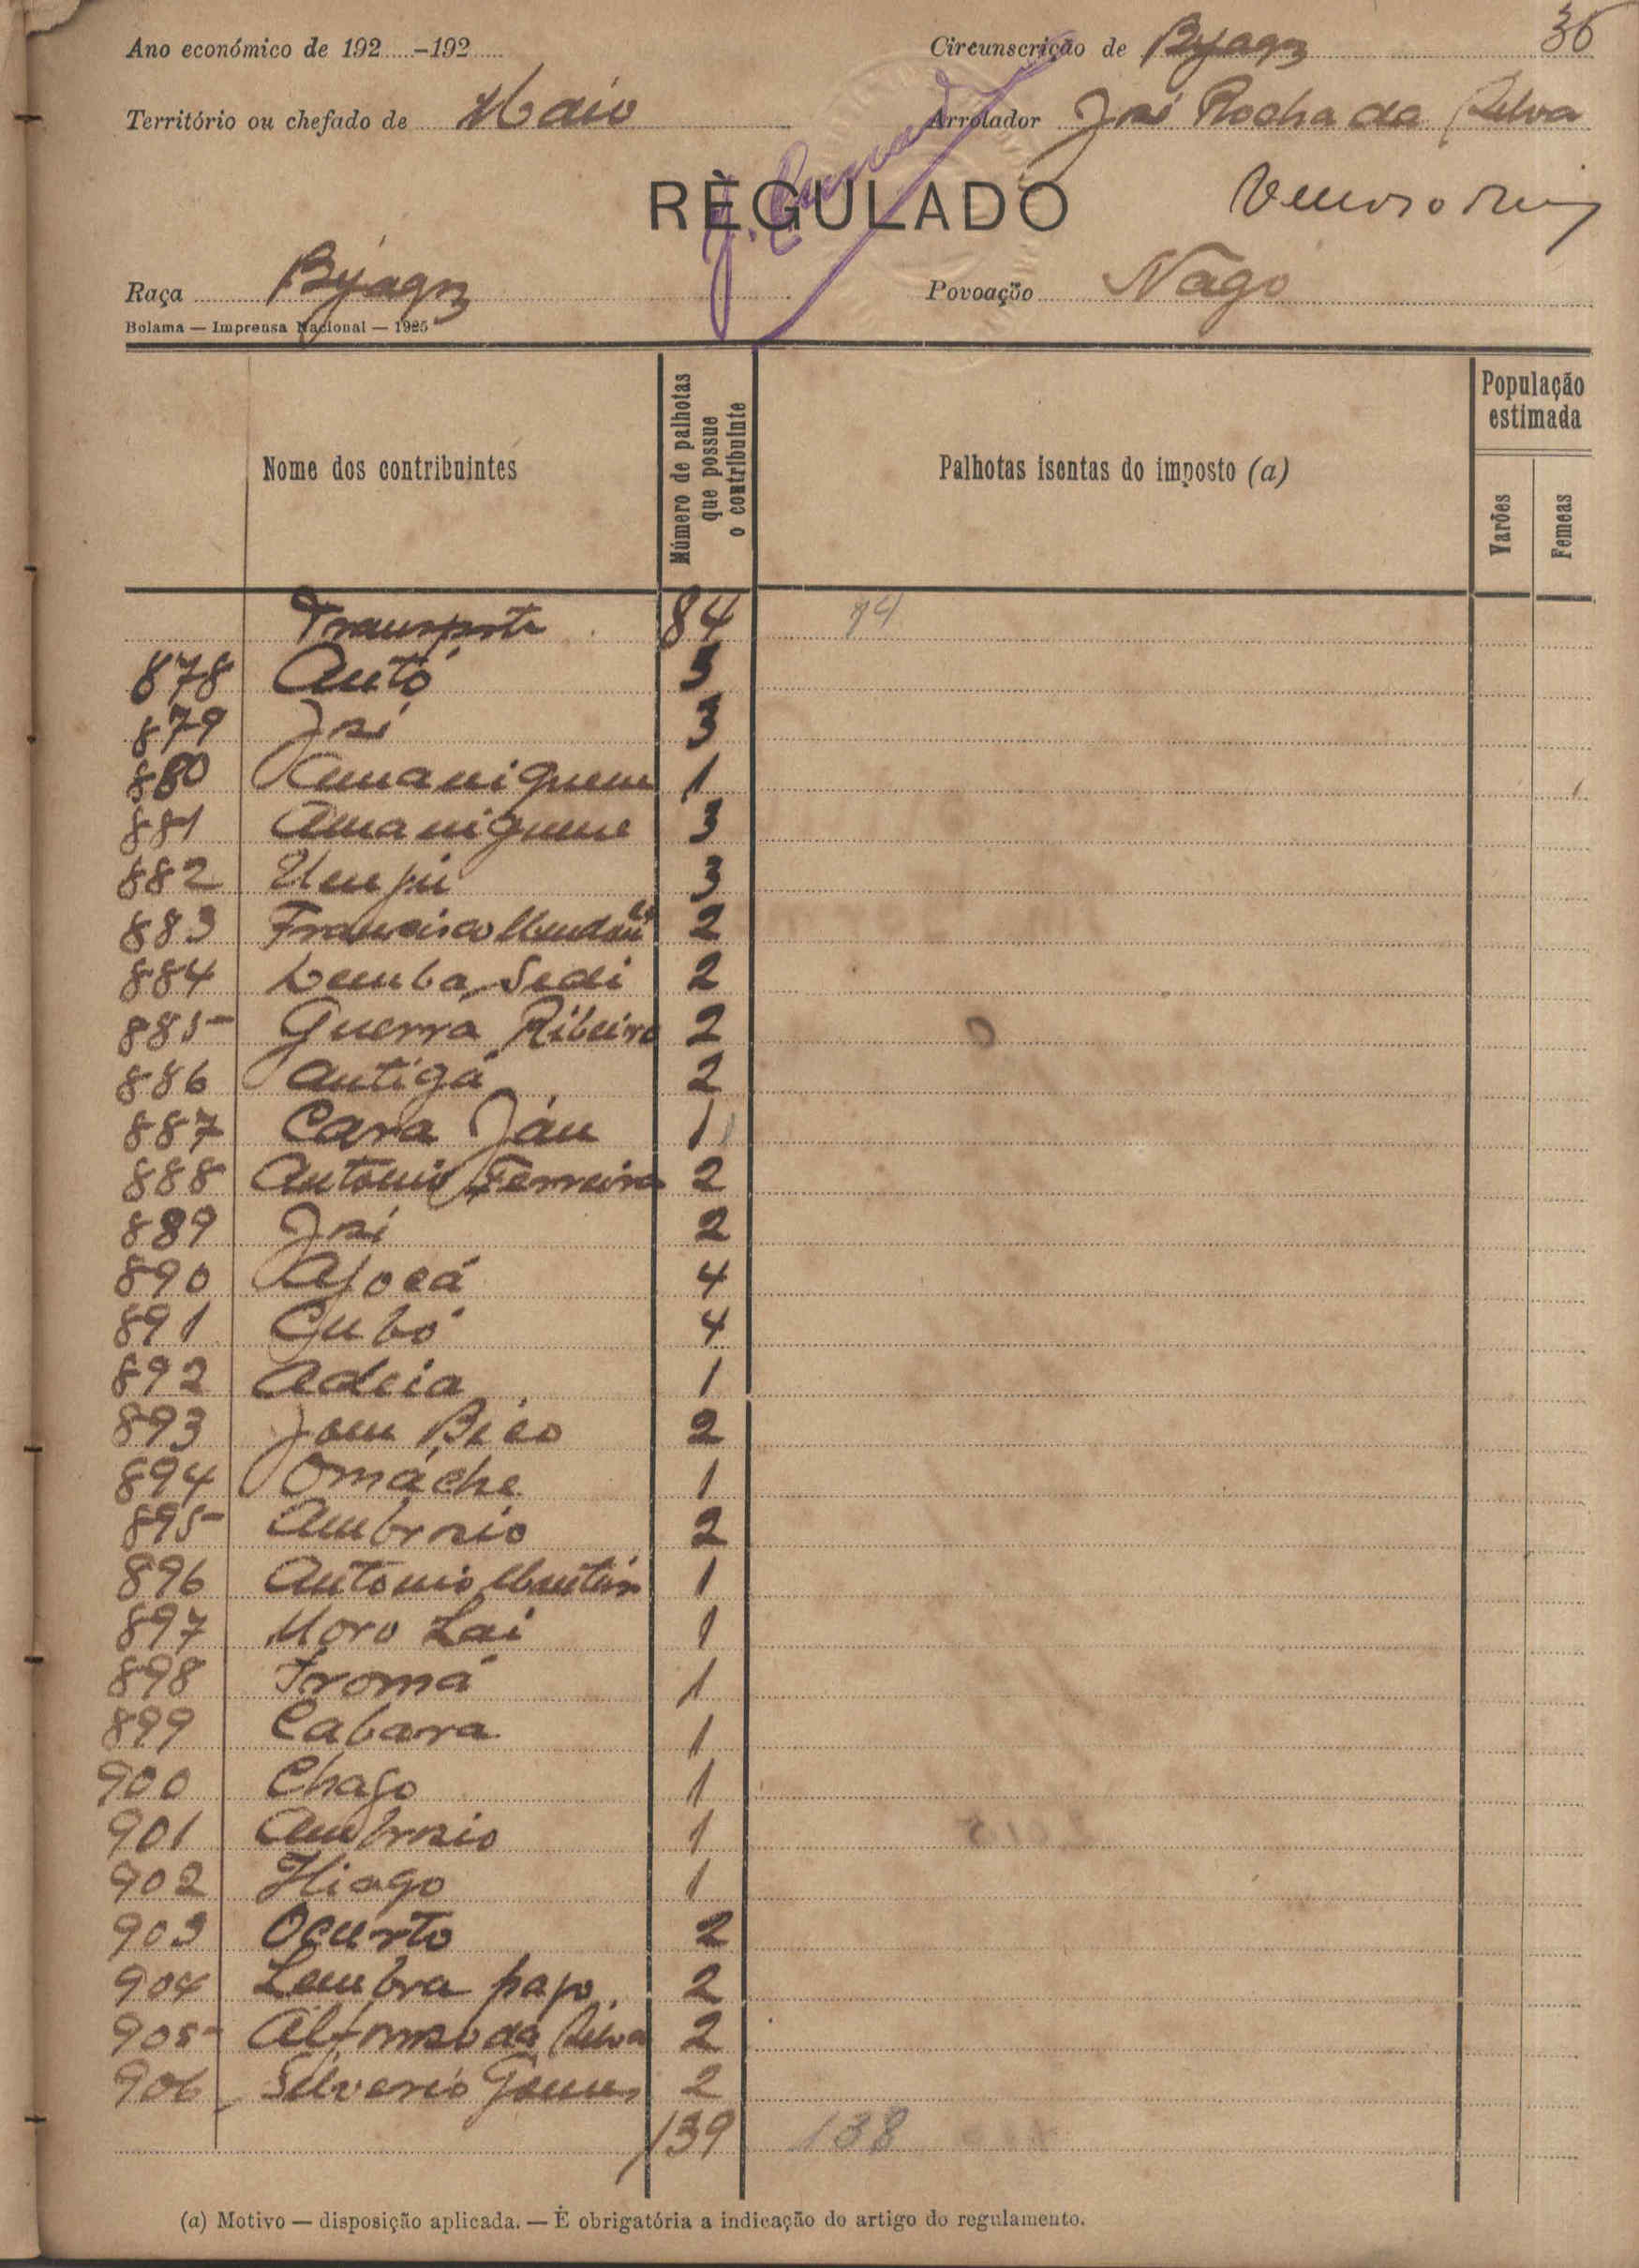 Ano económico de 192.....-192.....
Circunscrição de Byagoz
36
Território ou chefado de Maio
Arrolador José Rocha da Silva
RÈGULADO
Raça Byagoz
Povoação Nago
Bolama — Imprensa Nacional — 1925
Nome dos contribuintes
Número de palhotas que possue o contribuinte
Palhotas isentas do imposto (a)
População estimada
Varões
Femeas
Transporte 84
878 Antó 3
879 José 3
880 1
881 3
882 3
883 Francisco 2
884 Lemba Sedi 2
885 Guerra Ribeiro 2
886 Antigá 2
887 Cara Ján 1
888 Antonio Ferreira 2
889 José 2
890 Ajocá 4
891 Cubó 4
892 Adeia 1
893 Jom Bico 2
894 Omáche 1
895 Ambrosio 2
896 Antonio 1
897 Moro Lai 1
898 Iromá 1
899 Cabara 1
900 Chago 1
901 Ambrosio 1
902 Hiago 1
903 Ocurto 2
904 Lembra papo 2
905 Alfonso da Silva 2
906 Silverio Gomes 2
139 138
(a) Motivo — disposição aplicada. — É obrigatória a indicação do artigo do regulamento.